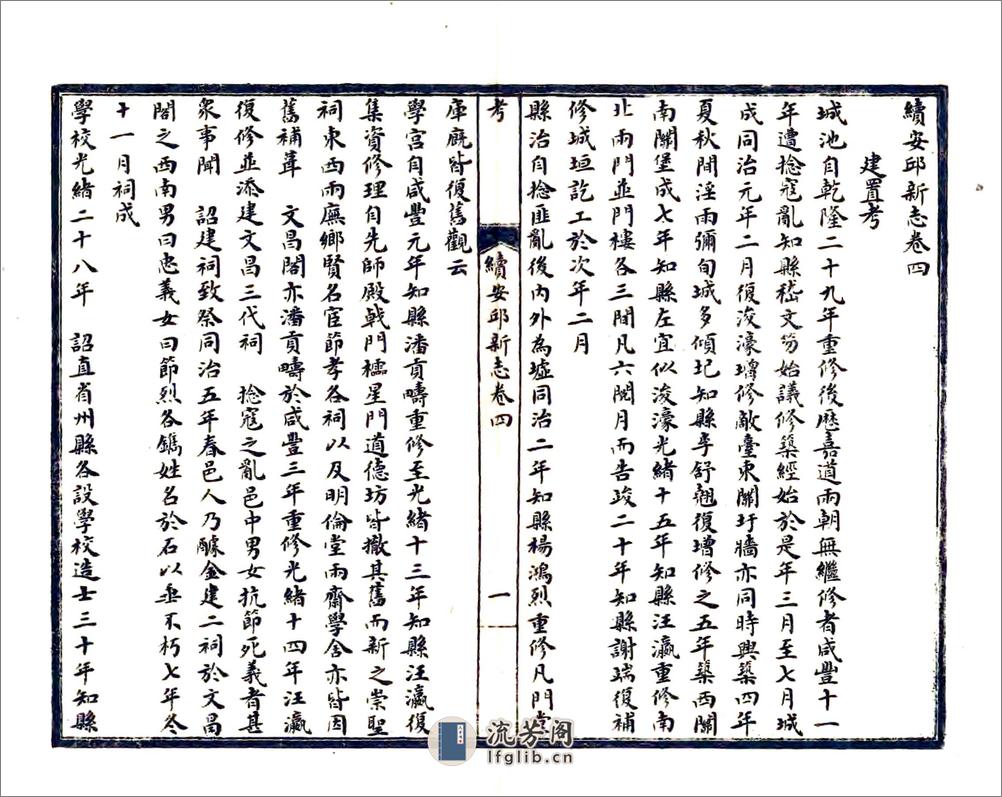 續安邱新志卷四
建置考
城池自乾隆二十九年重修後歷嘉道兩朝無繼修者咸豐十一
年遭捻寇亂知縣嵇文笏始議修築經始於是年三月至七月城
成同治元年二月復浚濠增修敵臺東關圩牆亦同時興築四年
夏秋間淫雨彌旬城多傾圮知縣李舒翹復增修之五年築西關
南關堡成七年知縣左宜似浚濠光緒十五年知縣汪瀛重修南
北兩門並門樓各三間凡六閱月而告竣二十年知縣謝瑞復補
修城垣訖工於次年二月
縣治自捻匪亂後內外為墟同治二年知縣楊鴻烈重修凡門堂
考
續安邱新志卷四
一
庫廐皆復舊觀云
學宮自咸豐元年知縣潘貢疇重修至光緒十三年知縣汪瀛復
集資修理自先師殿戟門櫺星門道德坊皆撤其舊而新之崇聖
祠東西兩廡鄉賢名宦節孝各祠以及明倫堂兩齋學舍亦皆因
舊補葺 文昌閣亦潘貢疇於咸豐三年重修光緒十四年汪瀛
復修並添建文昌三代祠 捻寇之亂邑中男女抗節死義者甚
眾事聞 詔建祠致祭同治五年春邑人乃醵金建二祠於文昌
閣之西南男曰忠義女曰節烈各鐫姓名於石以垂不朽七年冬
十一月祠成
學校光緒二十八年 詔直省州縣各設學校造士三十年知縣
流芳阁
lfglib.cn